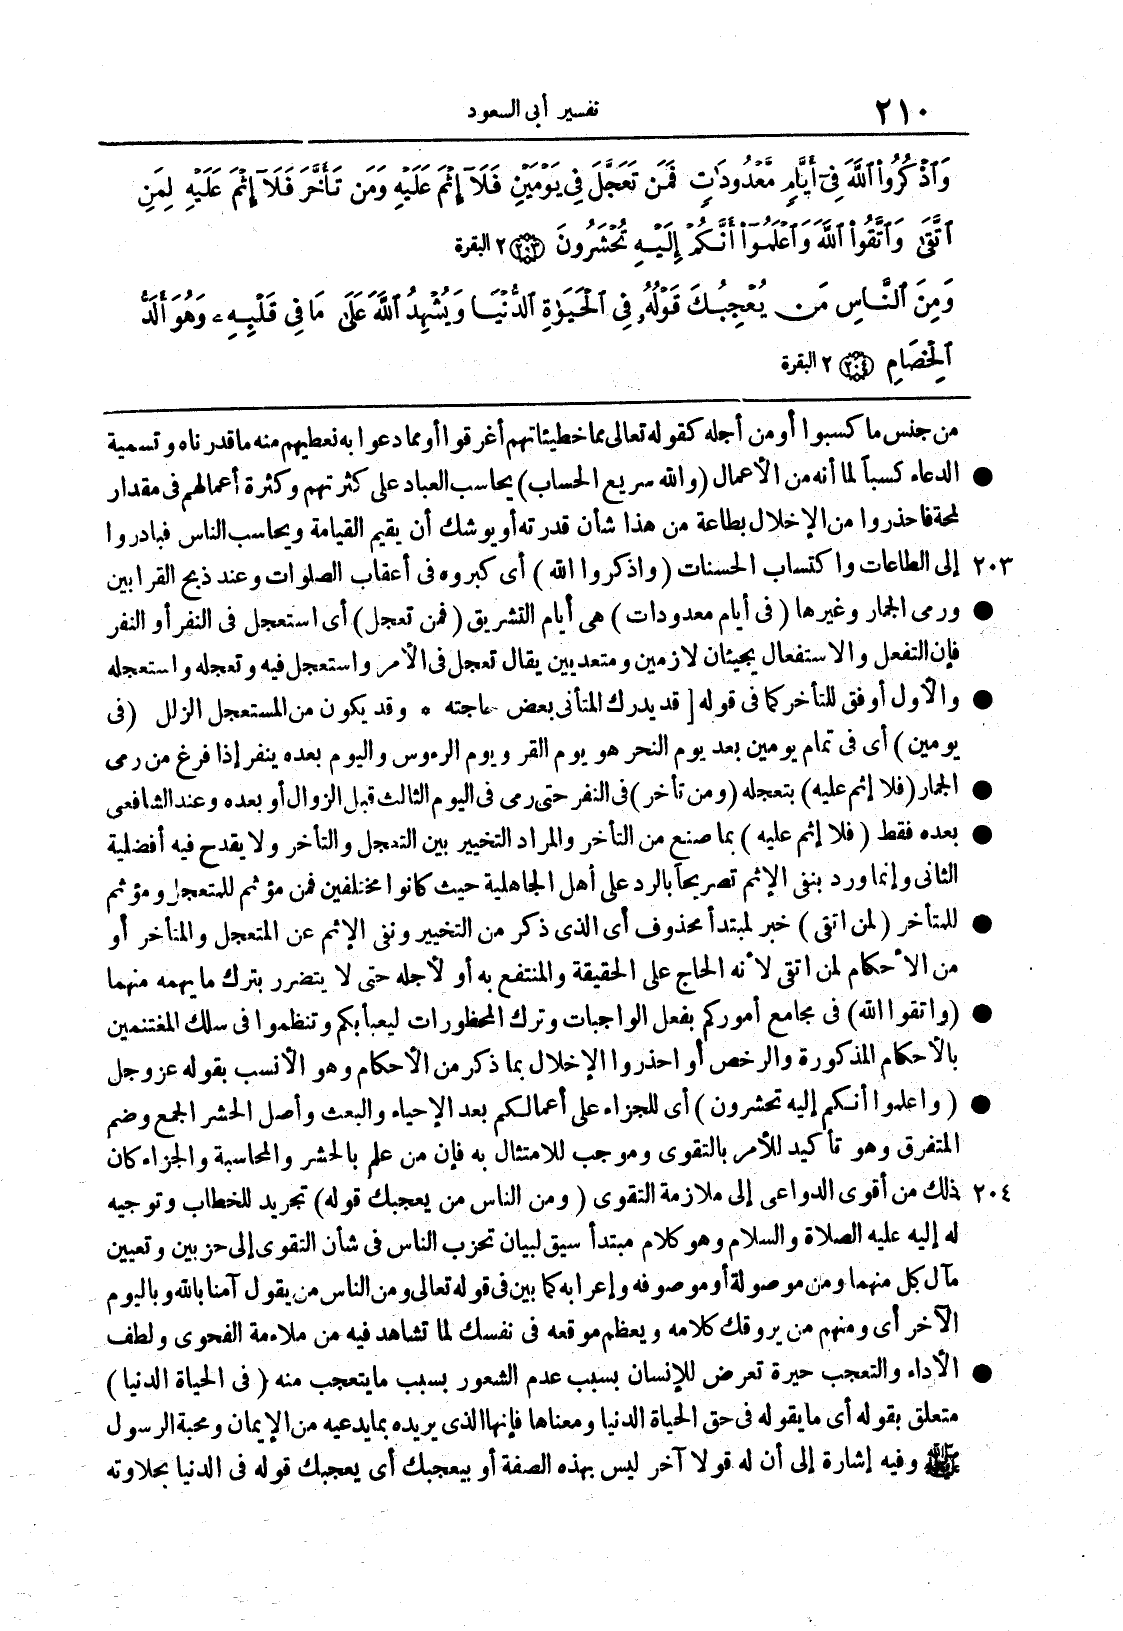 ٢١٠ تفسير أبى السعود
وَٱذْكُرُوا۟ ٱللَّهَ فِىٓ أَيَّامٍ مَّعْدُودَٰتٍ فَمَن تَعَجَّلَ فِى يَوْمَيْنِ فَلَآ إِثْمَ عَلَيْهِ وَمَن تَأَخَّرَ فَلَآ إِثْمَ عَلَيْهِ لِمَنِ
ٱتَّقَىٰ وَٱتَّقُوا۟ ٱللَّهَ وَٱعْلَمُوٓا۟ أَنَّكُمْ إِلَيْهِ تُحْشَرُونَ ﴿٢٠٣﴾ ٢ البقرة
وَمِنَ ٱلنَّاسِ مَن يُعْجِبُكَ قَوْلُهُۥ فِى ٱلْحَيَوٰةِ ٱلدُّنْيَا وَيُشْهِدُ ٱللَّهَ عَلَىٰ مَا فِى قَلْبِهِۦ وَهُوَ أَلَدُّ
ٱلْخِصَامِ ﴿٢٠٤﴾ ٢ البقرة
من جنس ما كسبوا أو من أجله كقوله تعالى مما خطيئاتهم أغرقوا أو مما دعوا به نعطيهم منه ما قدرناه وتسمية
● الدعاء كسباً لما أنه من الأعمال (والله سريع الحساب) يحاسب العباد على كثرتهم وكثرة أعمالهم فى مقدار
لمحة فاحذروا من الإخلال بطاعة من هذا شأن قدرته أو يوشك أن يقيم القيامة ويحاسب الناس فبادروا
٢٠٣ إلى الطاعات واكتساب الحسنات (واذكروا الله) أى كبروه فى أعقاب الصلوات وعند ذبح القرابين
● ورمى الجمار وغيرها (فى أيام معدودات) هى أيام التشريق (فمن تعجل) أى استعجل فى النفر أو النفر
فإن التفعل والاستفعال يجيئان لازمين ومتعديين يقال تعجل فى الأمر واستعجل فيه وتعجله واستعجله
● والأول أوفق للتأخر كما فى قوله [ قد يدرك المتأنى بعض حاجته * وقد يكون من المستعجل الزلل (فى
يومين) أى فى تمام يومين بعد يوم النحر هو يوم القر ويوم الرءوس واليوم بعده ينفر إذا فرغ من رمى
● الجمار (فلا إثم عليه) بتعجله (ومن تأخر) فى النفر حتى رمى فى اليوم الثالث قبل الزوال أو بعده وعند الشافعى
● بعده فقط (فلا إثم عليه) بما صنع من التأخر والمراد التخيير بين التعجل والتأخر ولا يقدح فيه أفضلية
الثانى وإنما ورد بنفى الإثم تصريحاً بالرد على أهل الجاهلية حيث كانوا مختلفين فمن مؤثم للمتعجل ومؤثم
● للمتأخر (لمن اتقى) خبر لمبتدأ محذوف أى الذى ذكر من التخيير ونفى الإثم عن المتعجل والمتأخر أو
من الأحكام لمن اتقى لأنه الحاج على الحقيقة والمنتفع به أو لأجله حتى لا يتضرر بترك ما يهمه منهما
● (واتقوا الله) فى مجامع أموركم بفعل الواجبات وترك المحظورات ليعبأ بكم وتنظموا فى سلك المغتنمين
بالأحكام المذكورة والرخص أو احذروا الإخلال بما ذكر من الأحكام وهو الأنسب بقوله عز وجل
● (واعلموا أنكم إليه تحشرون) أى للجزاء على أعمالكم بعد الإحياء والبعث وأصل الحشر الجمع وضم
المتفرق وهو تأكيد للأمر بالتقوى وموجب للامتثال به فإن من علم بالحشر والمحاسبة والجزاء كان
٢٠٤ ذلك من أقوى الدواعى إلى ملازمة التقوى (ومن الناس من يعجبك قوله) تجريد للخطاب وتوجيه
له إليه عليه الصلاة والسلام وهو كلام مبتدأ سيق لبيان تحزب الناس فى شأن التقوى إلى حزبين وتعيين
مآل كل منهما ومن موصولة أو موصوفه وإعرابه كما بين فى قوله تعالى ومن الناس من يقول آمنا بالله وباليوم
الآخر أى ومنهم من يروقك كلامه ويعظم موقعه فى نفسك لما تشاهد فيه من ملاءمة الفحوى ولطف
● الأداء والتعجب حيرة تعرض للإنسان بسبب عدم الشعور بسبب ما يتعجب منه (فى الحياة الدنيا)
متعلق بقوله أى ما يقوله فى حق الحياة الدنيا ومعناها فإنها الذى يريده بما يدعيه من الإيمان ومحبة الرسول
ﷺ وفيه إشارة إلى أن له قولا آخر ليس بهذه الصفة أو بيعجبك أى يعجبك قوله فى الدنيا بحلاوته